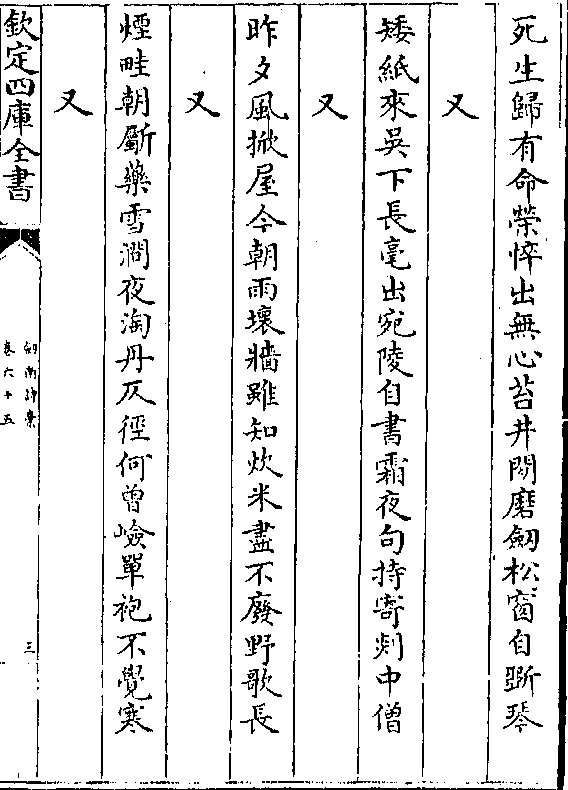 死生歸有命榮悴出無心苔井閑磨劒松窗自斵琴
又
矮紙來吳下長毫出宛陵自書霜夜句持寄剡中僧
又
昨夕風掀屋今朝雨壞牆雖知炊米盡不廢野歌長
又
煙畦朝斸藥雪澗夜淘丹仄徑何曾嶮單袍不覺寒
又
欽定四庫全書
劒南詩槀
卷六十五
三